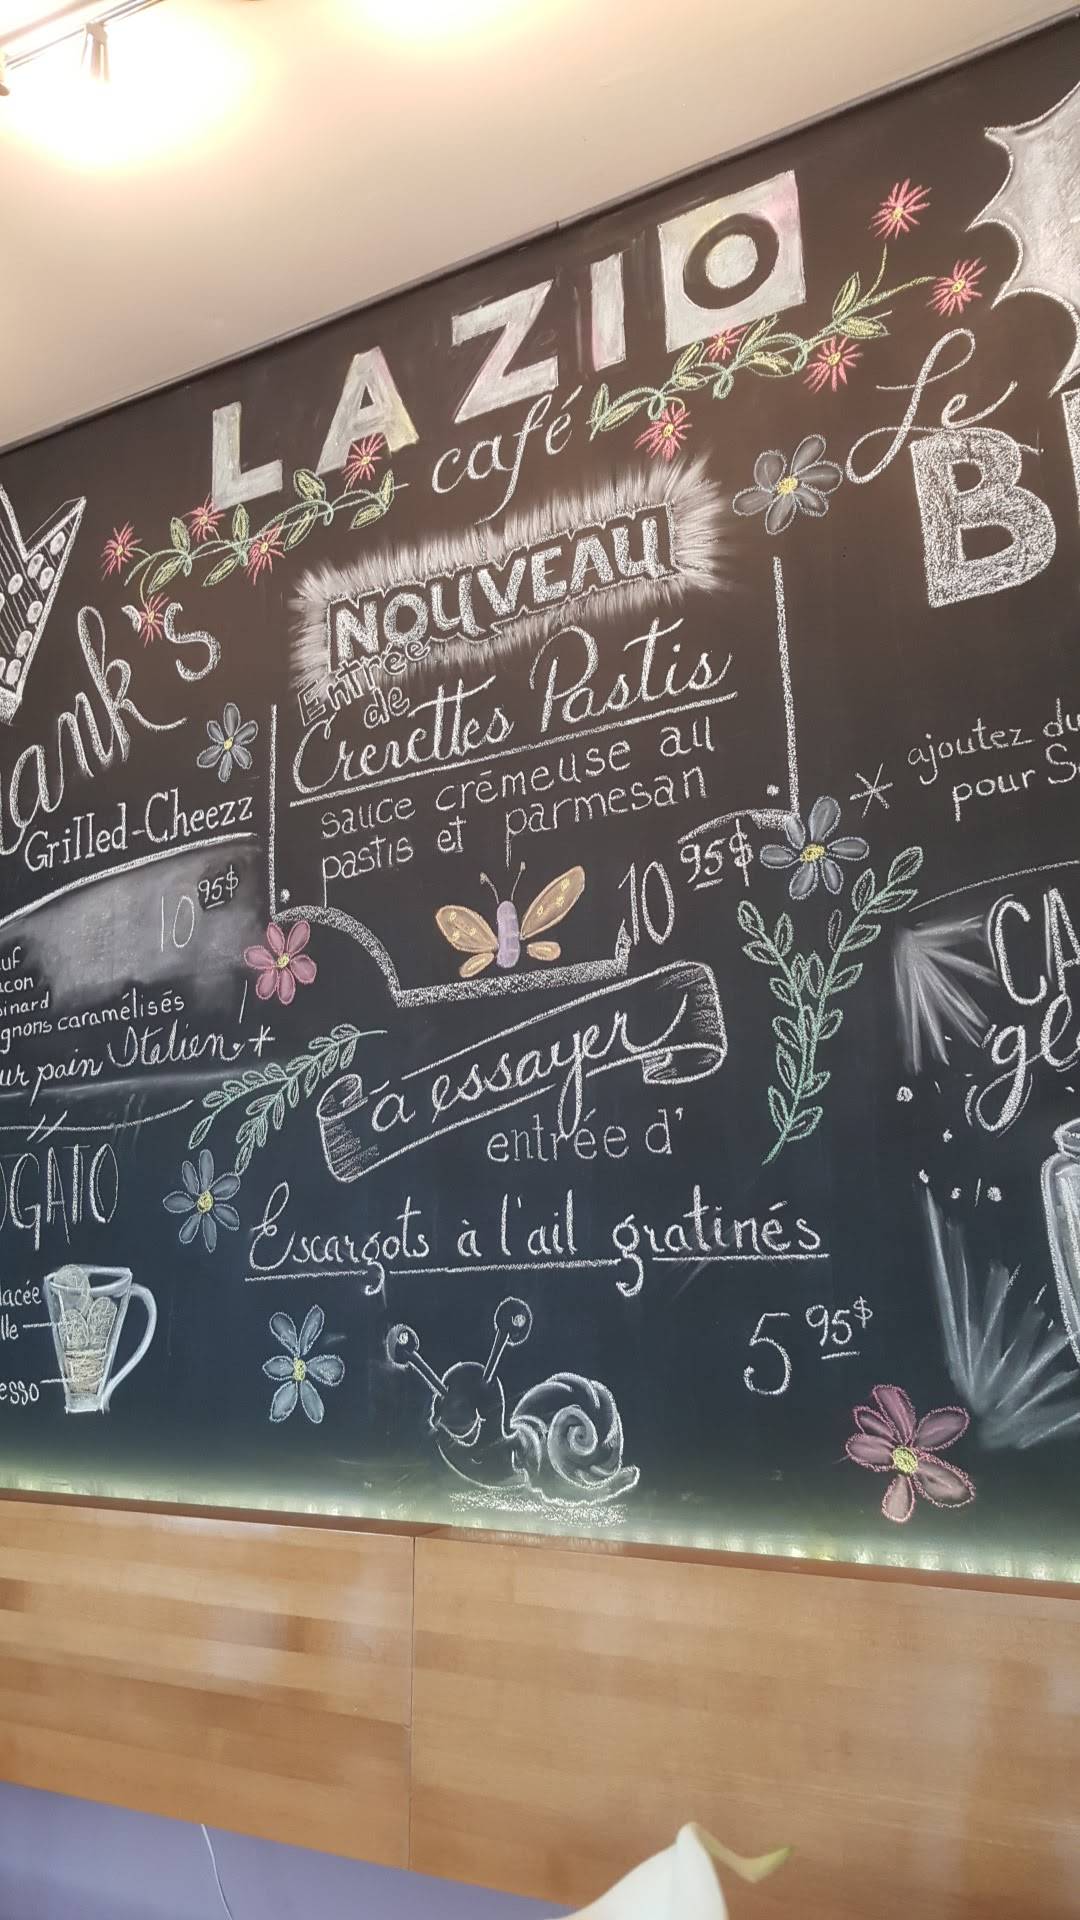 LAZIO
café
NOUVEAU
Entrée
de
Crevettes Pastis
sauce crémeuse au
pastis et parmesan
10 95$
à essayer
entrée d'
Escargots à l'ail gratinés
5 95$
ank's
Grilled-Cheezz
10 95$
uf
con
inard
gnons caramélisés
ur pain Italien *
OGATO
lacée
lle
esso
Le
B
* ajoutez du
pour S
CA
gl